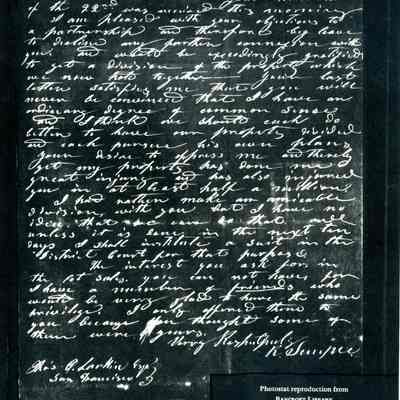 of the 22nd was received this morning.
I am pleased with your objections to
a partnership and therefore beg leave
to decline any further connexion with
you. and would be exceedingly gratified
to get a division of the property which
we now hold together. Your last
letter satisfies me that you will
never be convinced that I have an
ordinary degree of common sense.
and I think we should each do
better to have our property divided
and each pursue his own plans
Your desire to oppress me and thereby
get my property has done me a
great injury and has also injured
you in at least half a million.
I had rather make an amicable
division with you but I have no
idea that
unless it is done in the next ten
days I shall institute a suit in the
District Court for that purpose
The interest you ask for in
the lot sales you can not have, for
I have a number of friends who
would be very glad to have the same
privilege. I only offered them to
you because you thought some of
them were yours.
Very Respectfully
R. Semple
Thos O. Larkin Esqr
San Francisco
Photostat reproduction from
BANCROFT LIBRARY